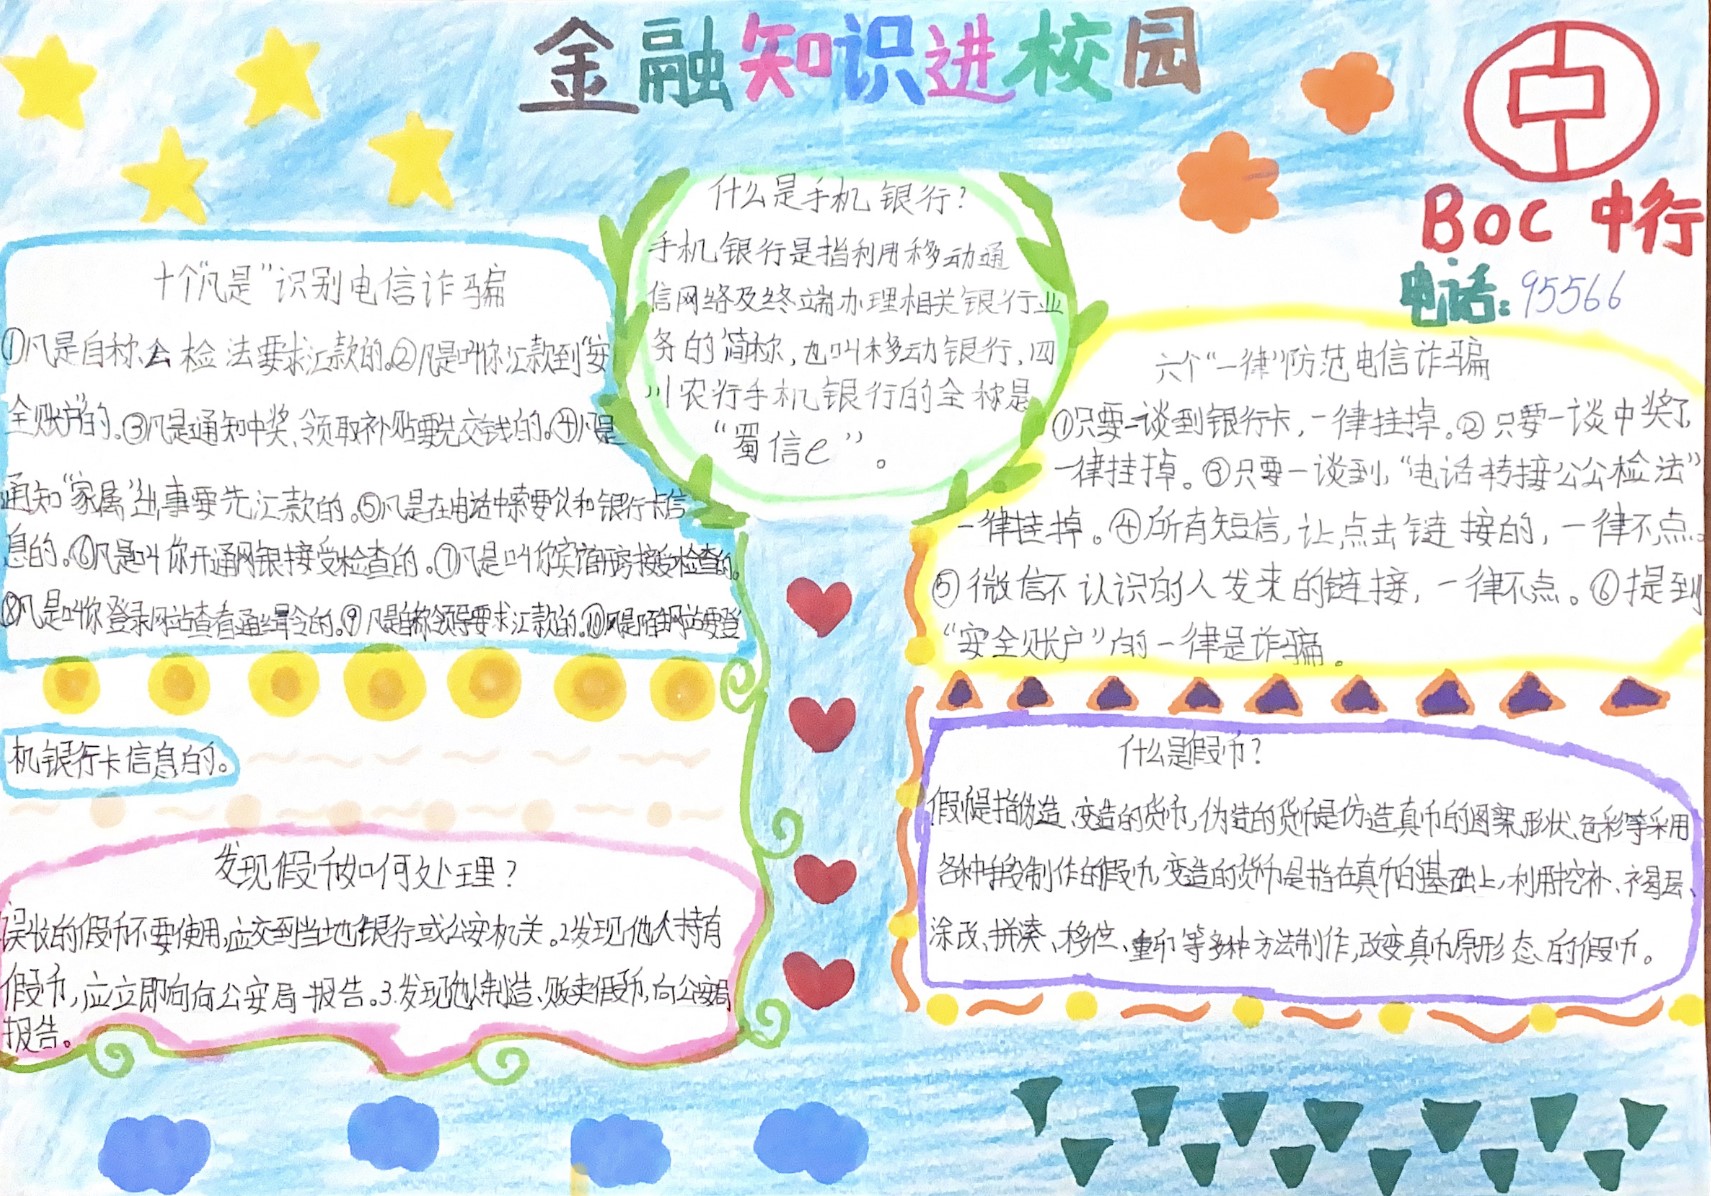 金融知识进校园
BOC 中行
电话：95566
十个“凡是”识别电信诈骗
①凡是自称公检法要求汇款的。②凡是叫你汇款到“安
全账户”的。③凡是通知中奖、领取补贴要先交钱的。④凡是
通知“家属”出事要先汇款的。⑤凡是在电话中索要仪和银行卡信
息的。⑥凡是叫你开通网银接受检查的。⑦凡是叫你宾馆开房接受检查的。
⑧凡是叫你登录网站查看通缉令的。⑨凡是自称领导要求汇款的。⑩凡是陌生网站要登
机银行卡信息的。
什么是手机银行？
手机银行是指利用移动通
信网络及终端办理相关银行业
务的简称，也叫移动银行，四
川农行手机银行的全称是
“蜀信e”。
六个“一律”防范电信诈骗
①只要一谈到银行卡，一律挂掉。②只要一谈中奖了
一律挂掉。③只要一谈到，“电话转接公公检法”
一律挂掉。④所有短信，让点击链接的，一律不点。
⑤微信不认识的人发来的链接，一律不点。⑥提到
“安全账户”的一律是诈骗。
发现假币如何处理？
误收的假币不要使用，应交到当地银行或公安机关。2发现他人持有
假币，应立即向向公安局报告。3.发现他人制造、贩卖假币，向公安局
报告。
什么是假币？
假币是指伪造、变造的货币，伪造的货币是仿造真币的图案、形状、色彩等采用
各种手段制作的假币，变造的货币是指在真币的基础上，利用挖补、揭层、
涂改、拼凑、移位、重印等多种方法制作，改变真币原形态的假币。